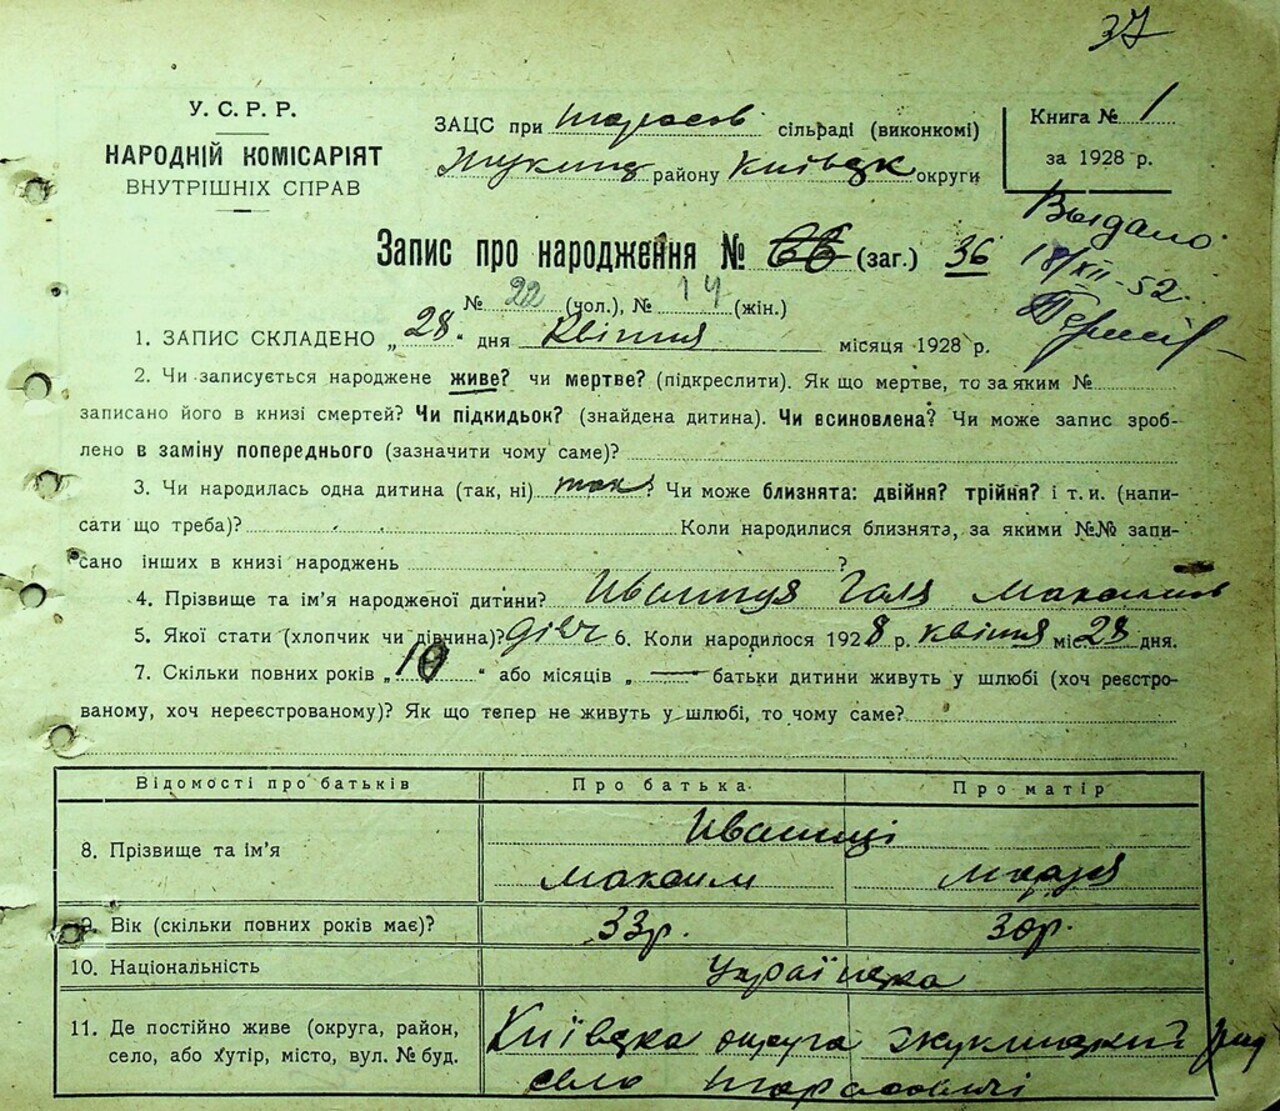 37
У. С. Р. Р.
НАРОДНІЙ КОМІСАРІЯТ
ВНУТРІШНІХ СПРАВ
ЗАЦС при Тарасов сільраді (виконкомі)
Жукинц району Київськ округи
Книга № 1
за 1928 р.
Выдано
18/XII-52
Запис про народження № 66 (заг.) 36
№ 22 (чол.), № 14 (жін.)
1. ЗАПИС СКЛАДЕНО „28“ дня Квітня місяця 1928 р.
2. Чи записується народжене живе? чи мертве? (підкреслити). Як що мертве, то за яким №
записано його в книзі смертей? Чи підкидьок? (знайдена дитина). Чи всиновлена? Чи може запис зроб-
лено в заміну попереднього (зазначити чому саме)?
3. Чи народилась одна дитина (так, ні) так? Чи може близнята: двійня? трійня? і т. и. (напи-
сати що треба)? Коли народилися близнята, за якими №№ запи-
сано інших в книзі народжень ?
4. Прізвище та ім'я народженої дитини? Галя Максимов
5. Якої стати (хлопчик чи дівчина)? дівч 6. Коли народилося 1928 р. квітня міс. 28 дня.
7. Скільки повних років „10“ або місяців „ — батьки дитини живуть у шлюбі (хоч реєстро-
ваному, хоч нереєстрованому)? Як що тепер не живуть у шлюбі, то чому саме?
Відомості про батьків Про батька Про матір
8. Прізвище та ім'я
Максим Марія
9. Вік (скільки повних років має)? 33р. 30р.
10. Національність Українська
11. Де постійно живе (округа, район, Київська округа Жукинський рай
село, або хутір, місто, вул. № буд. село Тарасовичі